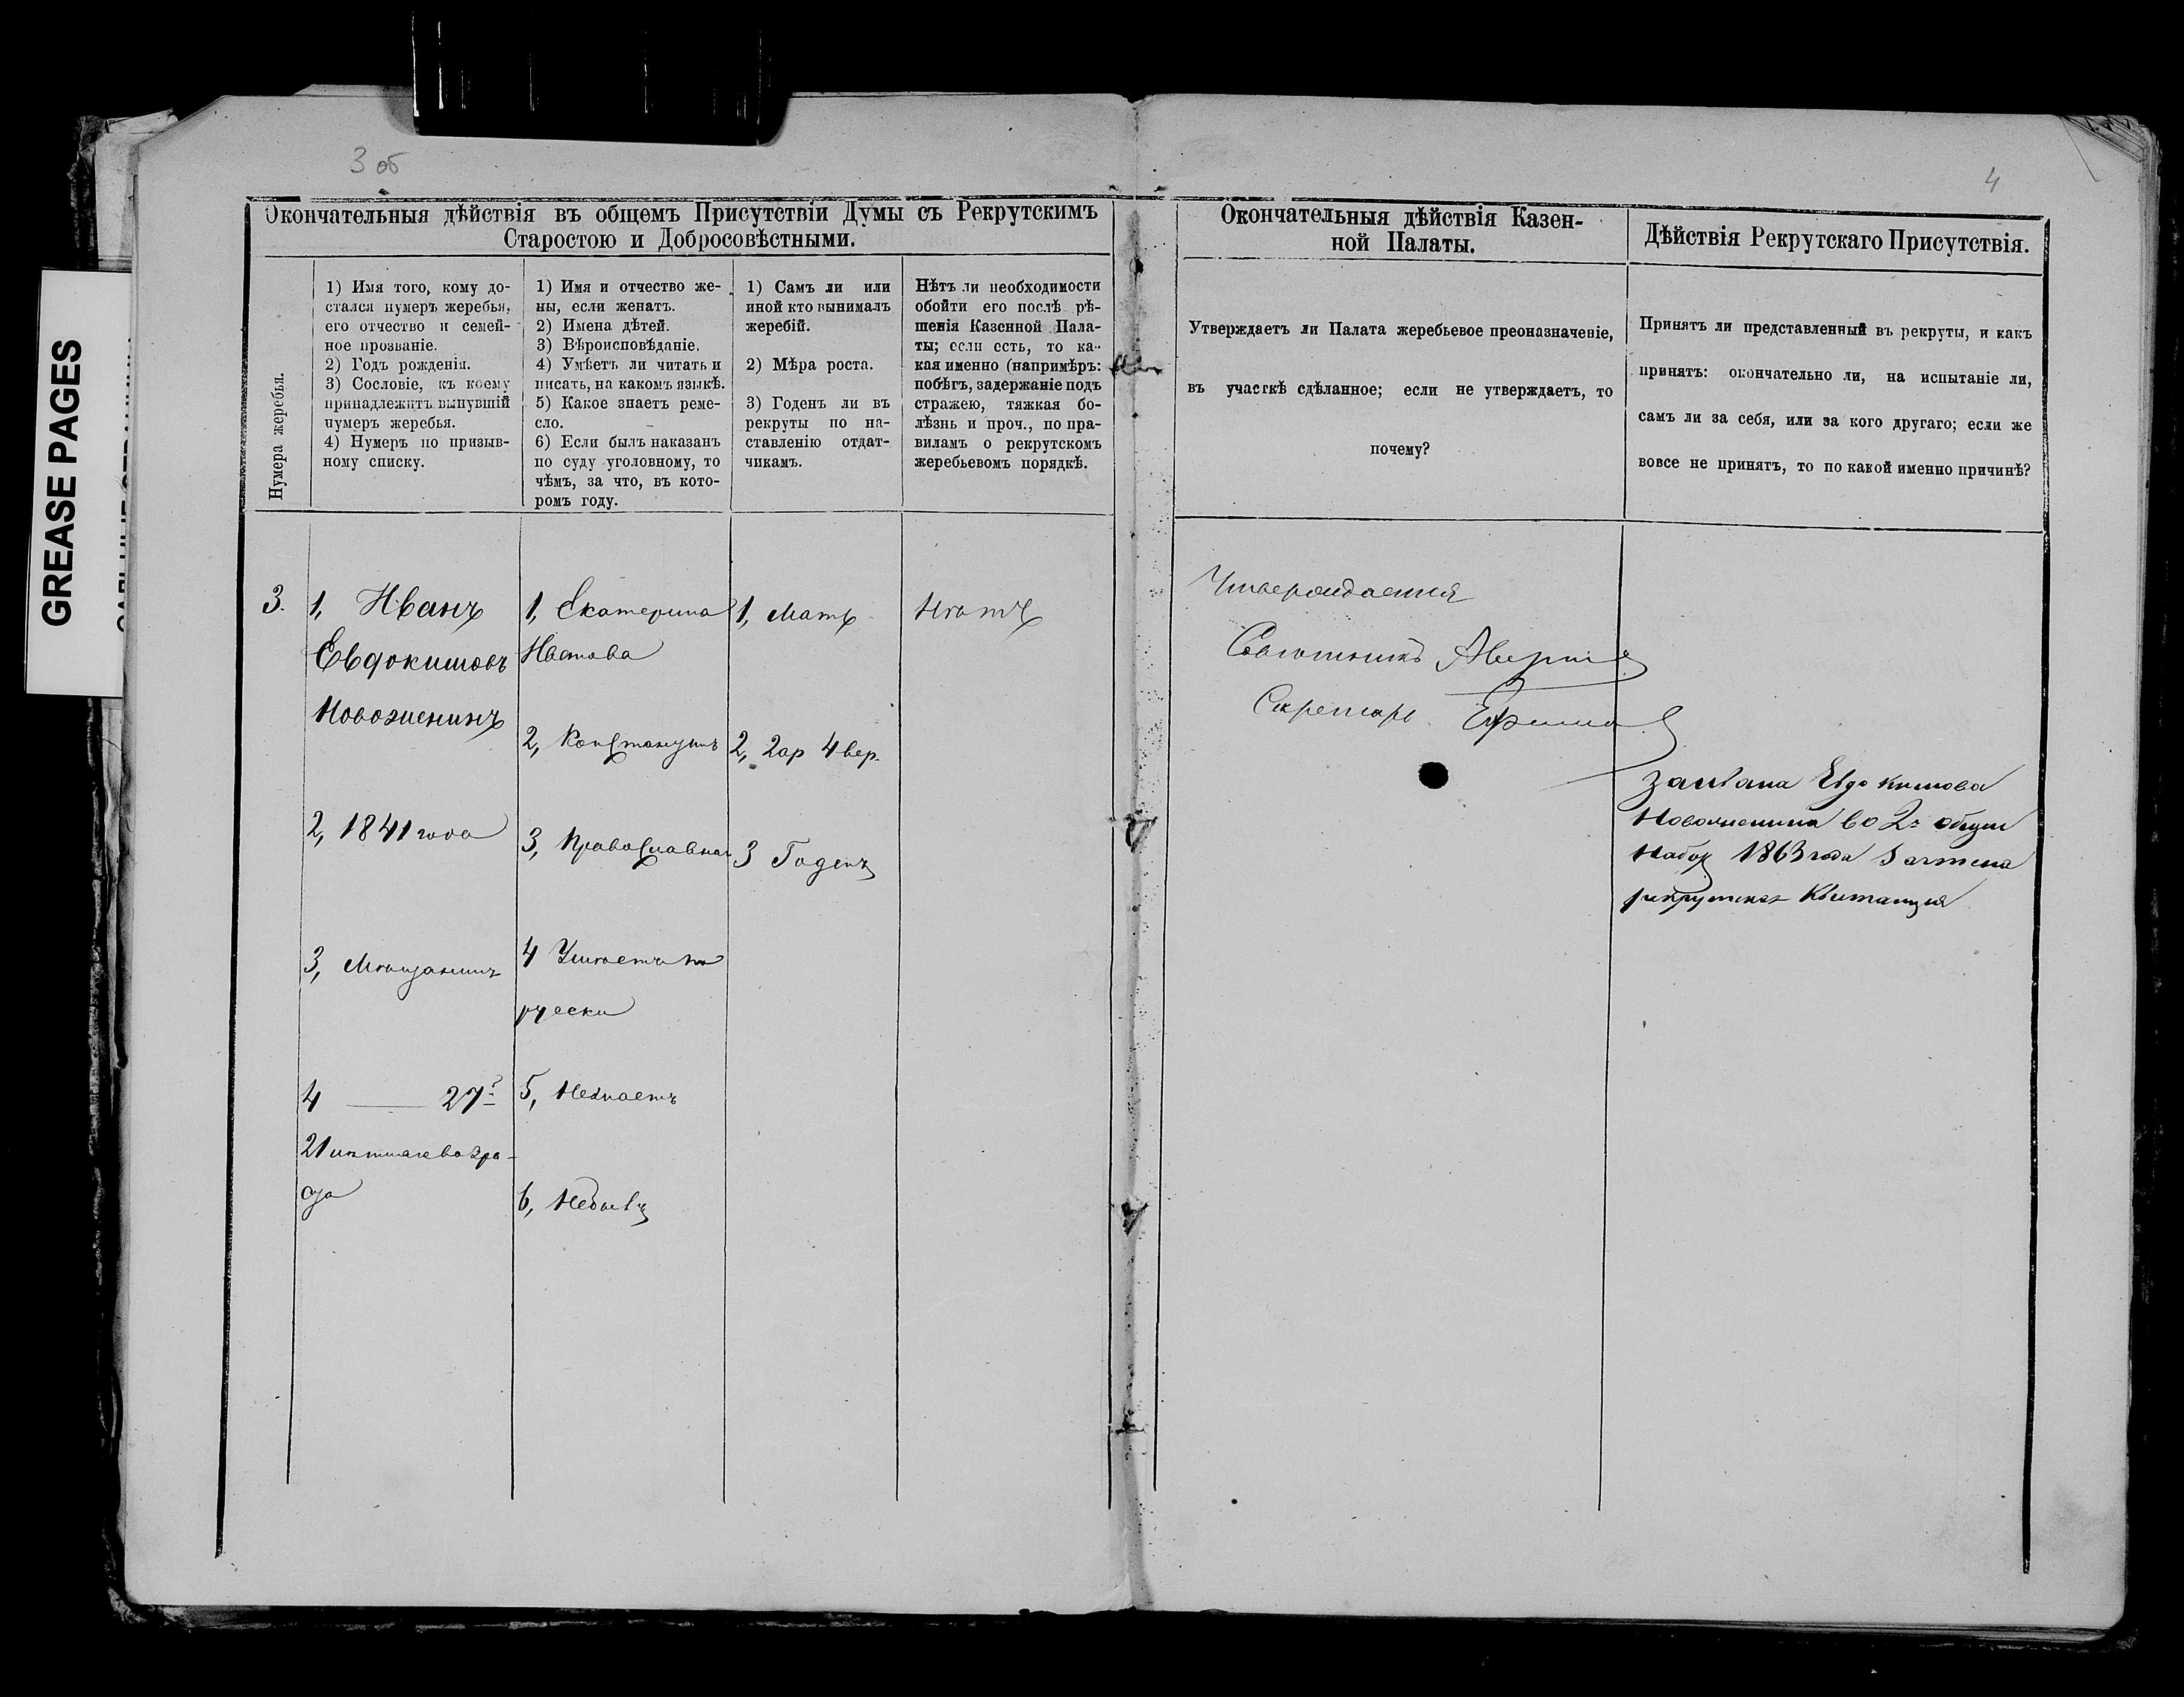 GREASE PAGES
3 об
4
Окончательныя дѣйствія въ общемъ Присутствіи Думы съ Рекрутскимъ
Старостою и Добросовѣстными.
Нумера жеребья.
1) Имя того, кому до-
стался нумеръ жеребья,
его отчество и семей-
ное прозваніе.
2) Годъ рожденія.
3) Сословіе, къ коему
принадлежитъ вынувшій
нумеръ жеребья.
4) Нумеръ по призыв-
ному списку.
1) Имя и отчество же-
ны, если женатъ.
2) Имена дѣтей.
3) Вѣроисповѣданіе.
4) Умѣетъ ли читать и
писать, на какомъ языкѣ.
5) Какое знаетъ реме-
сло.
6) Если былъ наказанъ
по суду уголовному, то
чѣмъ, за что, въ кото-
ромъ году.
1) Самъ ли или
иной кто вынималъ
жеребій.
2) Мѣра роста.
3) Годенъ ли въ
рекруты по на-
ставленію отдат-
чикамъ.
Нѣтъ ли необходимости
обойти его послѣ рѣ-
шенія Казенной Пала-
ты; если есть, то ка-
кая именно (напримѣръ:
побѣгъ, задержаніе подъ
стражею, тяжкая бо-
лѣзнь и проч., по пра-
виламъ о рекрутскомъ
жеребьевомъ порядкѣ.
Окончательныя дѣйствія Казен-
ной Палаты.
Утверждаетъ ли Палата жеребьевое преоназначеніе,
въ участкѣ сдѣланное; если не утверждаетъ, то
почему?
Дѣйствія Рекрутскаго Присутствія.
Принятъ ли представленный въ рекруты, и какъ
принятъ: окончательно ли, на испытаніе ли,
самъ ли за себя, или за кого другаго; если же
вовсе не принятъ, то по какой именно причинѣ?
3.
1, Иванъ
Евдокимовъ
Новоженинъ
2, 1841 года
3, Мѣщанинъ
4 27
21 лѣтняго возра-
ста
1, Екатерина
Иванова
2, Константинъ
3, Православная
4 Умѣетъ по
руски
5, Незнаетъ
6, Небылъ
1, Мать
2, 2 ар 4 вер.
3 Годенъ
Нѣтъ
Утверждается
Совѣтникъ
Секретарь
За Ивана Евдокимова
Новоженина во 2й общій
Наборъ 1863 года Зачтена
рекрутская Квитанція